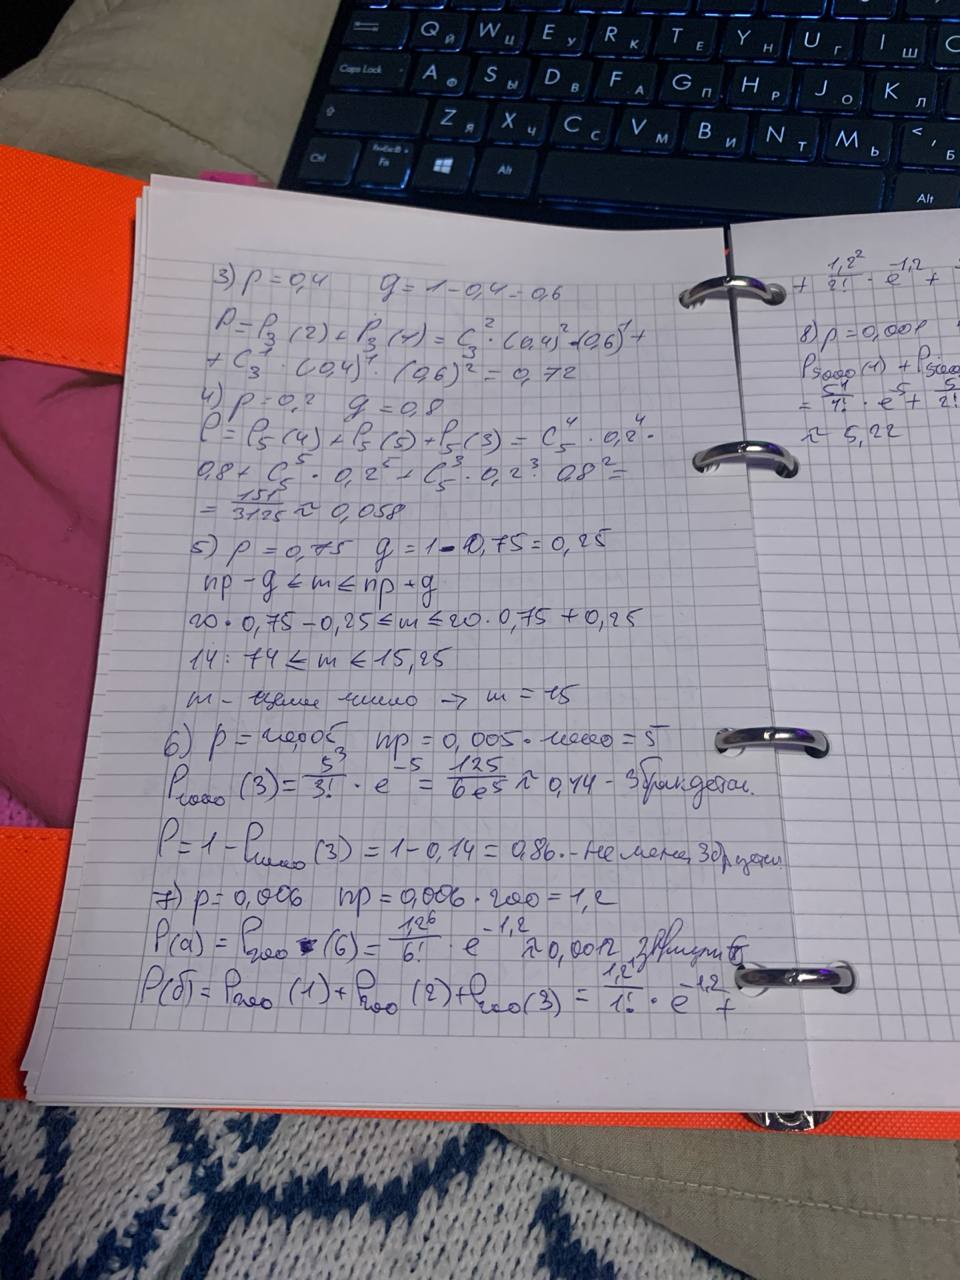 Q Й W Ц E У R К T Е Y Н U Г I Ш
Caps Lock A Ф S Ы D В F А G П H Р J О K Л
Z Я X Ч C С V М B И N Т M Ь < , Б
Ctrl Fn Alt Alt
3) p = 0,4 q = 1 - 0,4 = 0,6
P = P₃(2) + P₃(1) = C₃² · (0,4)² · (0,6)¹ +
+ C₃¹ · (0,4)¹ · (0,6)² = 0,72
4) p = 0,2 q = 0,8
P = P₅(4) + P₅(5) + P₅(3) = C₅⁴ · 0,2⁴ ·
0,8 + C₅⁵ · 0,2⁵ + C₅³ · 0,2³ · 0,8² =
= 181/3125 ≈ 0,058
5) p = 0,75 q = 1 - 0,75 = 0,25
np - q ≤ m ≤ np + q
20 · 0,75 - 0,25 ≤ m ≤ 20 · 0,75 + 0,25
14: 74 ≤ m ≤ 15,25
m - целое число → m = 15
6) np = 0,005 · 1000 = 5
P₁₀₀₀(3) = 5³/3! · e⁻⁵ = 125/6e⁵ ≈ 0,14 - 3
P = 1 - P₁₀₀₀(3) = 1 - 0,14 = 0,86 - не мене 3
7) p = 0,006 np = 0,006 · 200 = 1,2
P(а) = P₂₀₀(6) = 1,2⁶/6! · e^-1,2 ≈ 0,0012
P(б) = P₂₀₀(1) + P₂₀₀(2) + P₂₀₀(3) = 1,2¹/1! · e^-1,2 +
+ 1,2²/2! · e^-1,2 +
8) p = 0,001
P₅₀₀₀(1) + P₅₀₀₀
= 5¹/1! · e⁵ + 5/2!
≈ 5,22